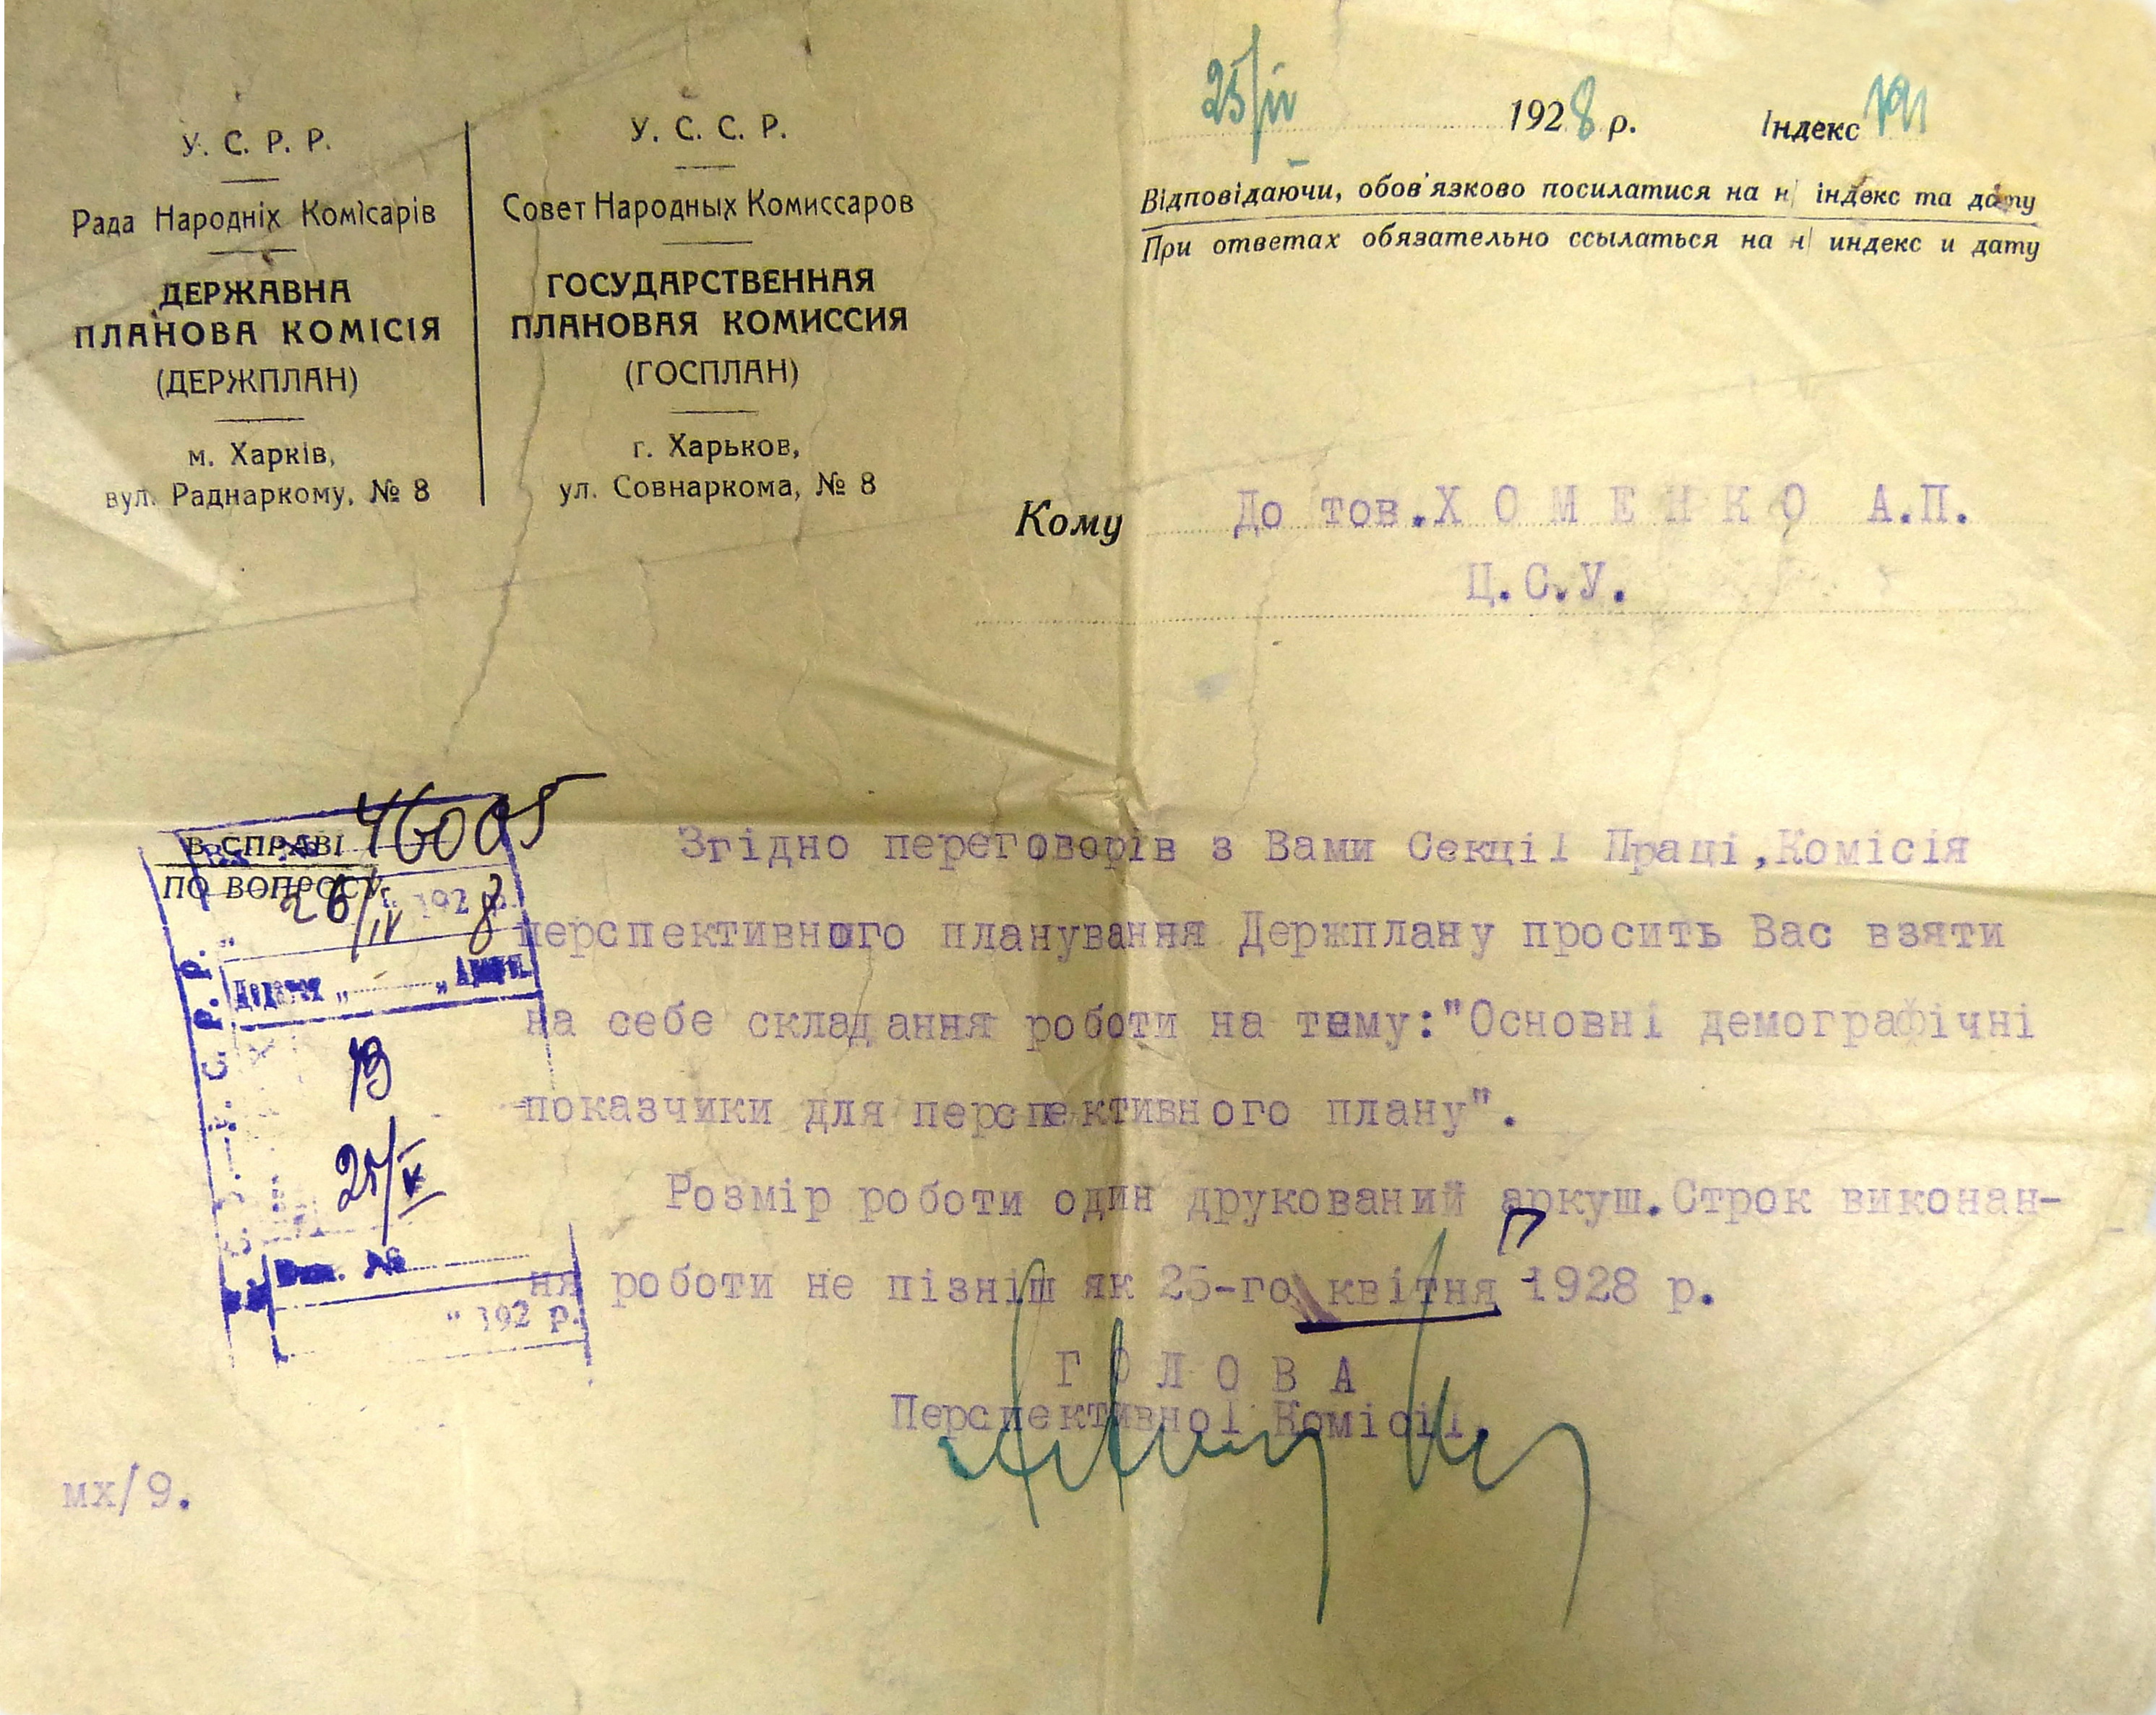 У. С. Р. Р.
Рада Народніх Комісарів
ДЕРЖАВНА
ПЛАНОВА КОМІСІЯ
(ДЕРЖПЛАН)
м. Харків,
вул. Раднаркому, № 8
У. С. С. Р.
Совет Народных Комиссаров
ГОСУДАРСТВЕННАЯ
ПЛАНОВАЯ КОМИССИЯ
(ГОСПЛАН)
г. Харьков,
ул. Совнаркома, № 8
25/IV 1928 р. Індекс
Відповідаючи, обов'язково посилатися на н/ індекс та дату
При ответах обязательно ссылаться на н/ индекс и дату
Кому До тов.ХОМЕНКО А.П.
Ц.С.У.
В СПРАВІ
ПО ВОПРОСУ
46005
26/IV 1928 р.
С. Р. Р.
Додаток „ “
25/IV
№
" 192 р.
Згідно переговорів з Вами Секції Праці,Комісія
перспективного планування Держплану просить Вас взяти
на себе складання роботи на тему:"Основні демографічні
показчики для перспективного плану".
Розмір роботи один друкований аркуш.Строк виконан-
ня роботи не пізніш як 25-го квітня 1928 р.
ГОЛОВА
Перспективної Комісії
мх/9.